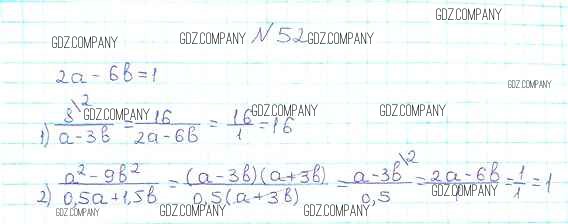 GDZ.COMPANY
GDZ.COMPANY GDZ.COMPANY N 52 GDZ.COMPANY
2a - 6b = 1 GDZ.COMPANY
1) 8\2 / a - 3b = 16 / 2a - 6b = 16 / 1 = 16 GDZ.COMPANY GDZ.COMPANY GDZ.COMPANY
2) a² - 9b² / 0,5a + 1,5b = (a - 3b)(a + 3b) / 0,5(a + 3b) = a - 3b\2 / 0,5 = 2a - 6b / 1 = 1 / 1 = 1 GDZ.COMPANY
GDZ.COMPANY GDZ.COMPANY GDZ.COMPANY